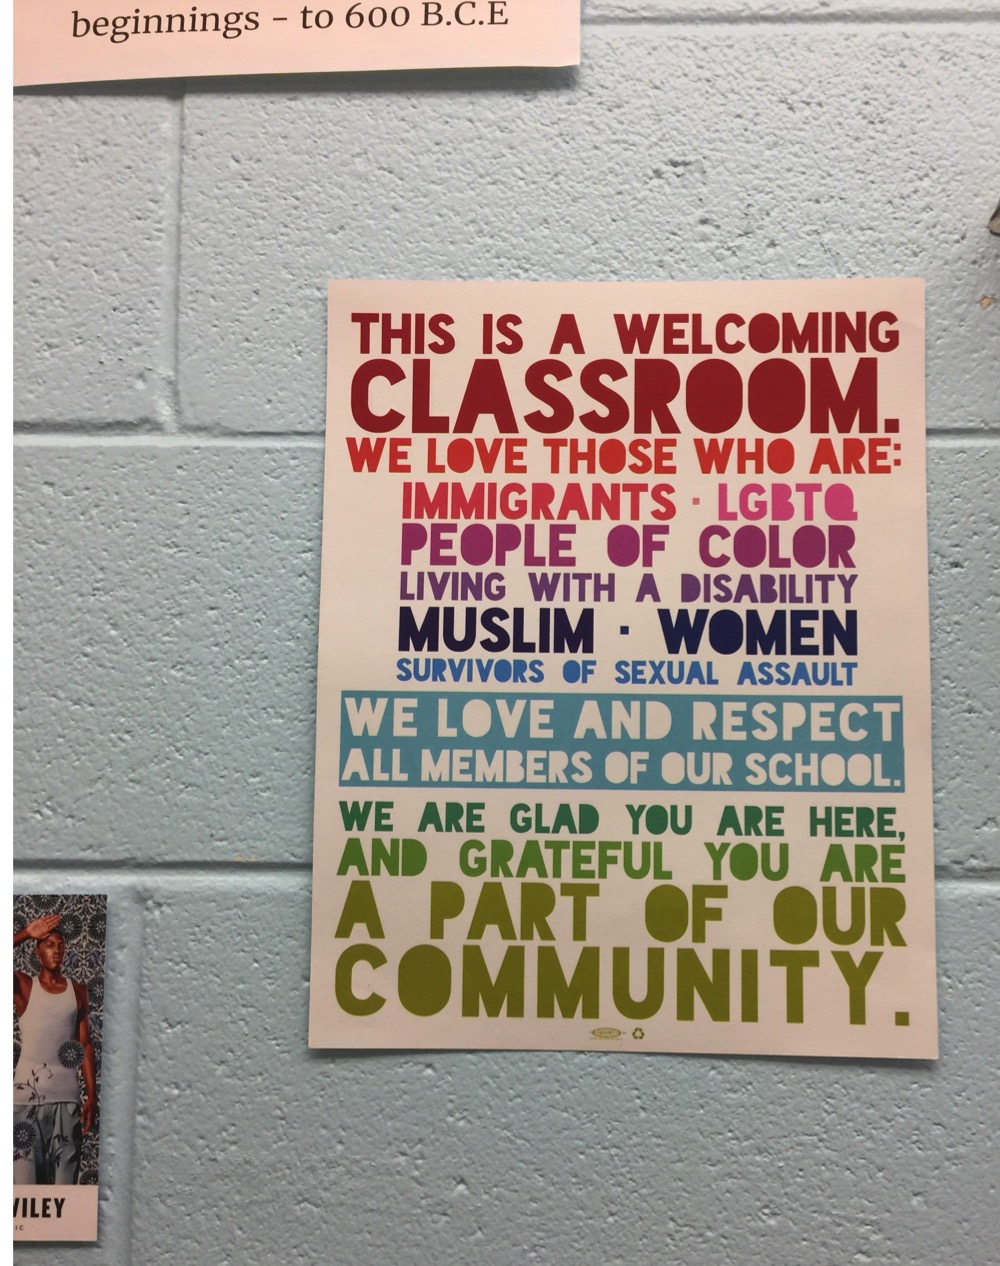 beginnings - to 600 B.C.E
THIS IS A WELCOMING
CLASSROOM.
WE LOVE THOSE WHO ARE:
IMMIGRANTS · LGBTQ
PEOPLE OF COLOR
LIVING WITH A DISABILITY
MUSLIM · WOMEN
SURVIVORS OF SEXUAL ASSAULT
WE LOVE AND RESPECT
ALL MEMBERS OF OUR SCHOOL.
WE ARE GLAD YOU ARE HERE,
AND GRATEFUL YOU ARE
A PART OF OUR
COMMUNITY.
WILEY
IC